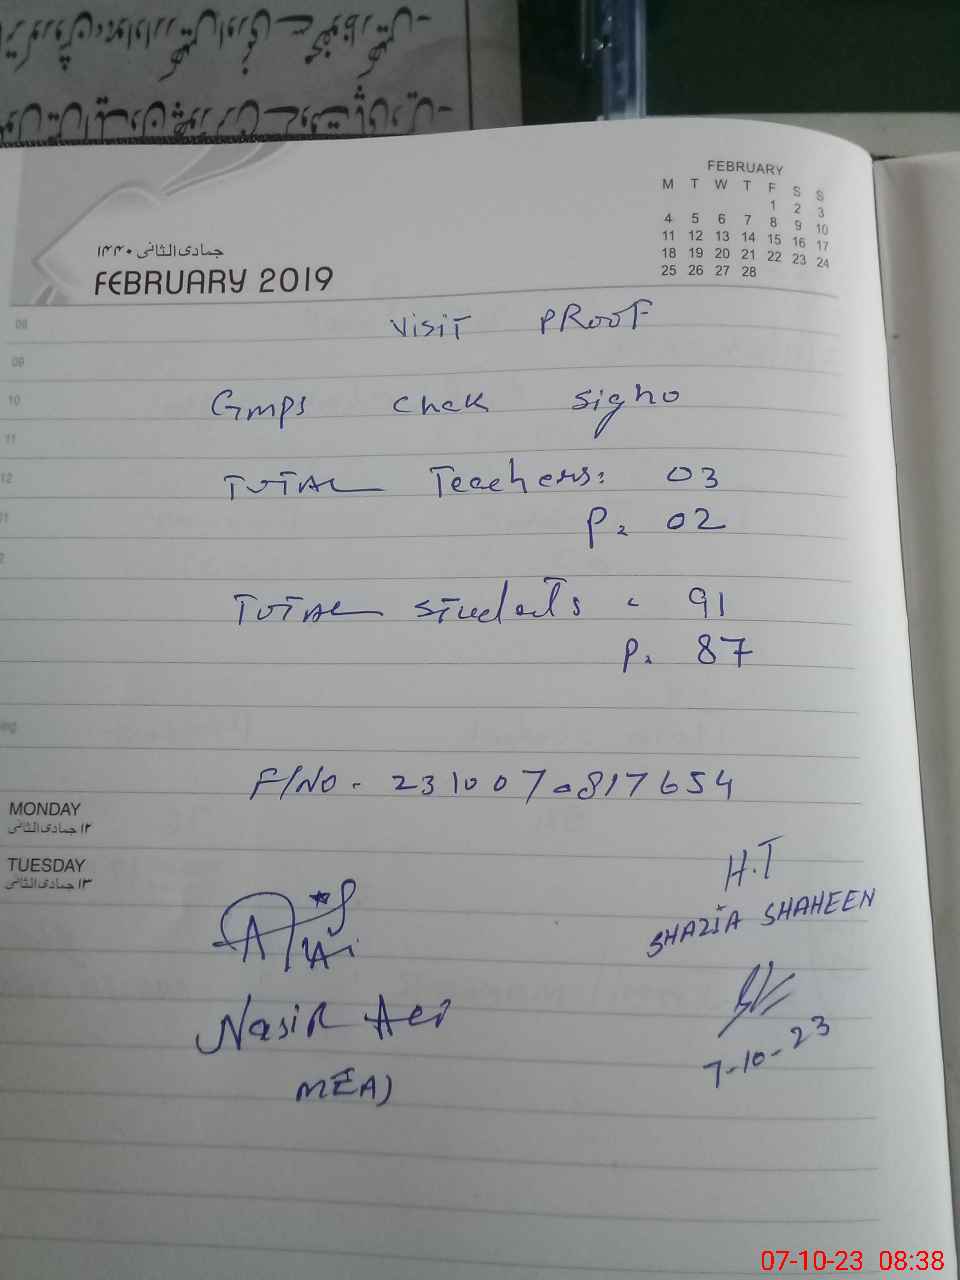 FEBRUARY
M T W T F S S
1 2 3
4 5 6 7 8 9 10
11 12 13 14 15 16 17
18 19 20 21 22 23 24
25 26 27 28
جمادی الثانی ۱۴۴۰
FEBRUARY 2019
08
09
10
11
12
VISIT PROOF
GMPS Chak Signo
TOTAL Teachers: 03
P. 02
TOTAL Students - 91
P. 87
F/NO - 231007-817654
MONDAY
۱۲ جمادی الثانی
TUESDAY
۱۳ جمادی الثانی
H.T
SHAZIA SHAHEEN
7-10-23
Nasir Ali
MEA
07-10-23 08:38